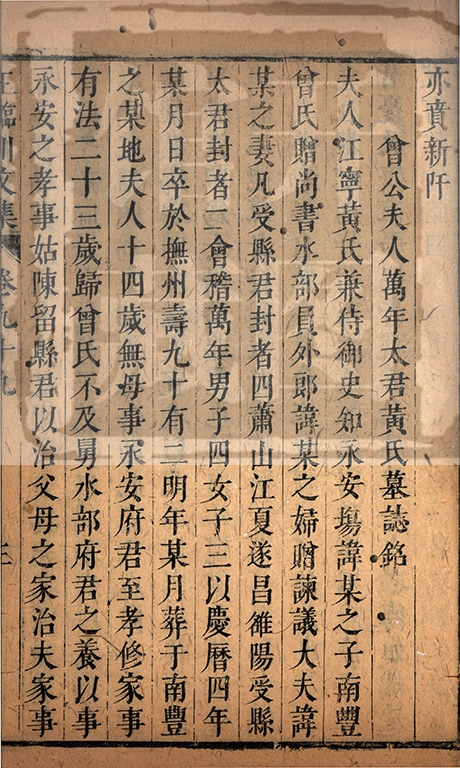 亦賁新阡
曾公夫人萬年太君黃氏墓誌銘
夫人江寧黃氏兼侍御史知永安塲諱某之子南豐
曾氏贈尚書水部員外郎諱某之婦贈諫議大夫諱
某之妻凡受縣君封者四蕭山江夏遂昌雒陽受縣
太君封者二會稽萬年男子四女子三以慶曆四年
某月日卒於撫州壽九十有二明年某月葬于南豐
之某地夫人十四歲無母事永安府君至孝修家事
有法二十三歲歸曾氏不及舅水部府君之養以事
永安之孝事姑陳留縣君以治父母之家治夫家事
王臨川文集 卷九十九 三